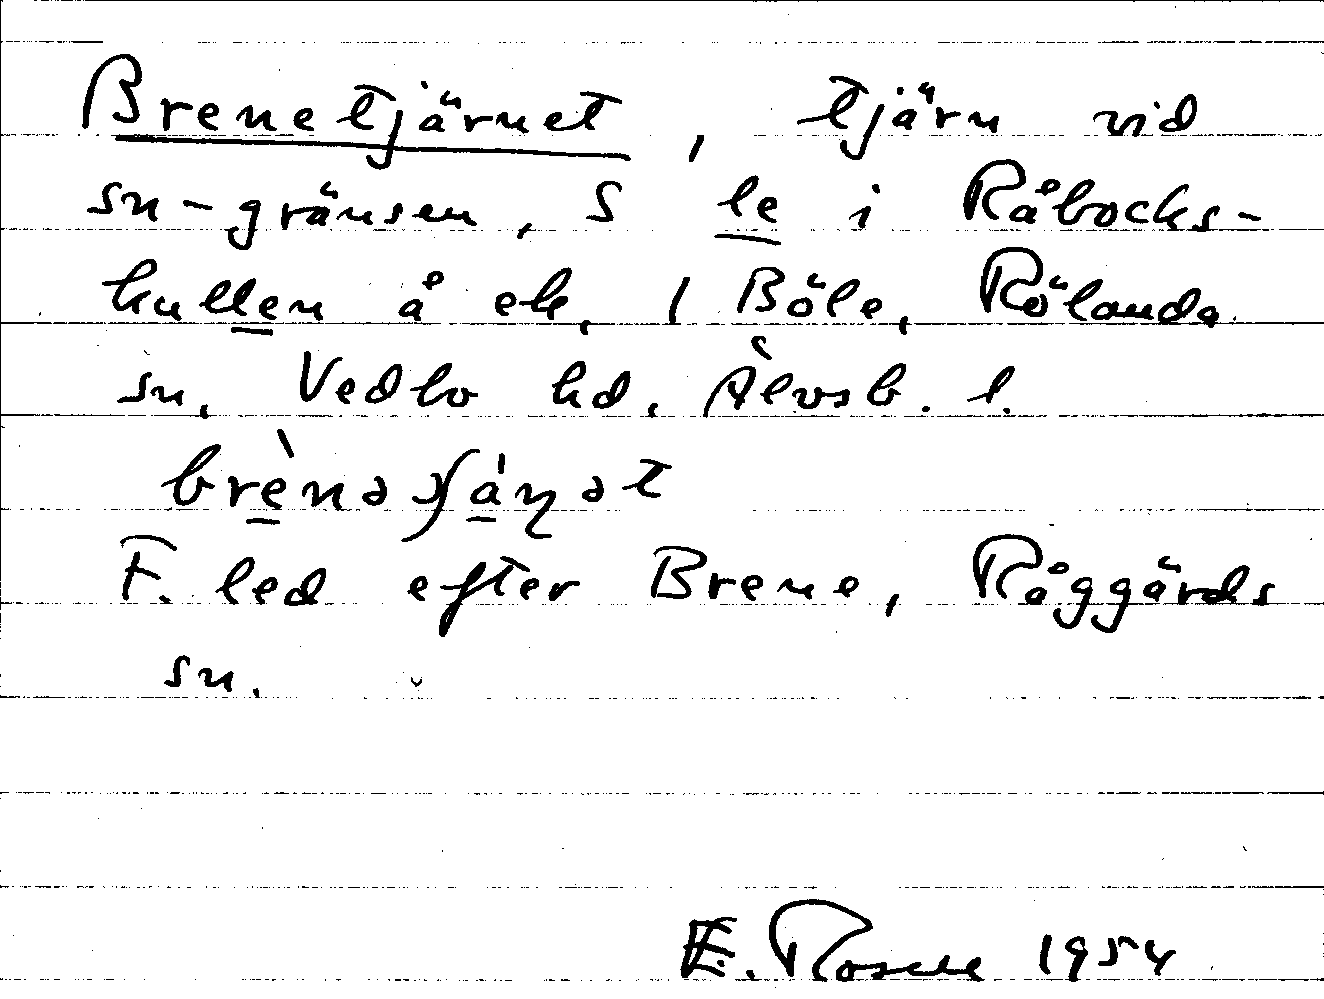 Brenetjärnet, tjärn vid
sn-gränsen, S le i Råbocks-
kullen å ek, 1 Böle, Rölanda
sn, Vedbo hd, Älvsb. l.
F. led efter Brene, Råggärds
sn.
1954